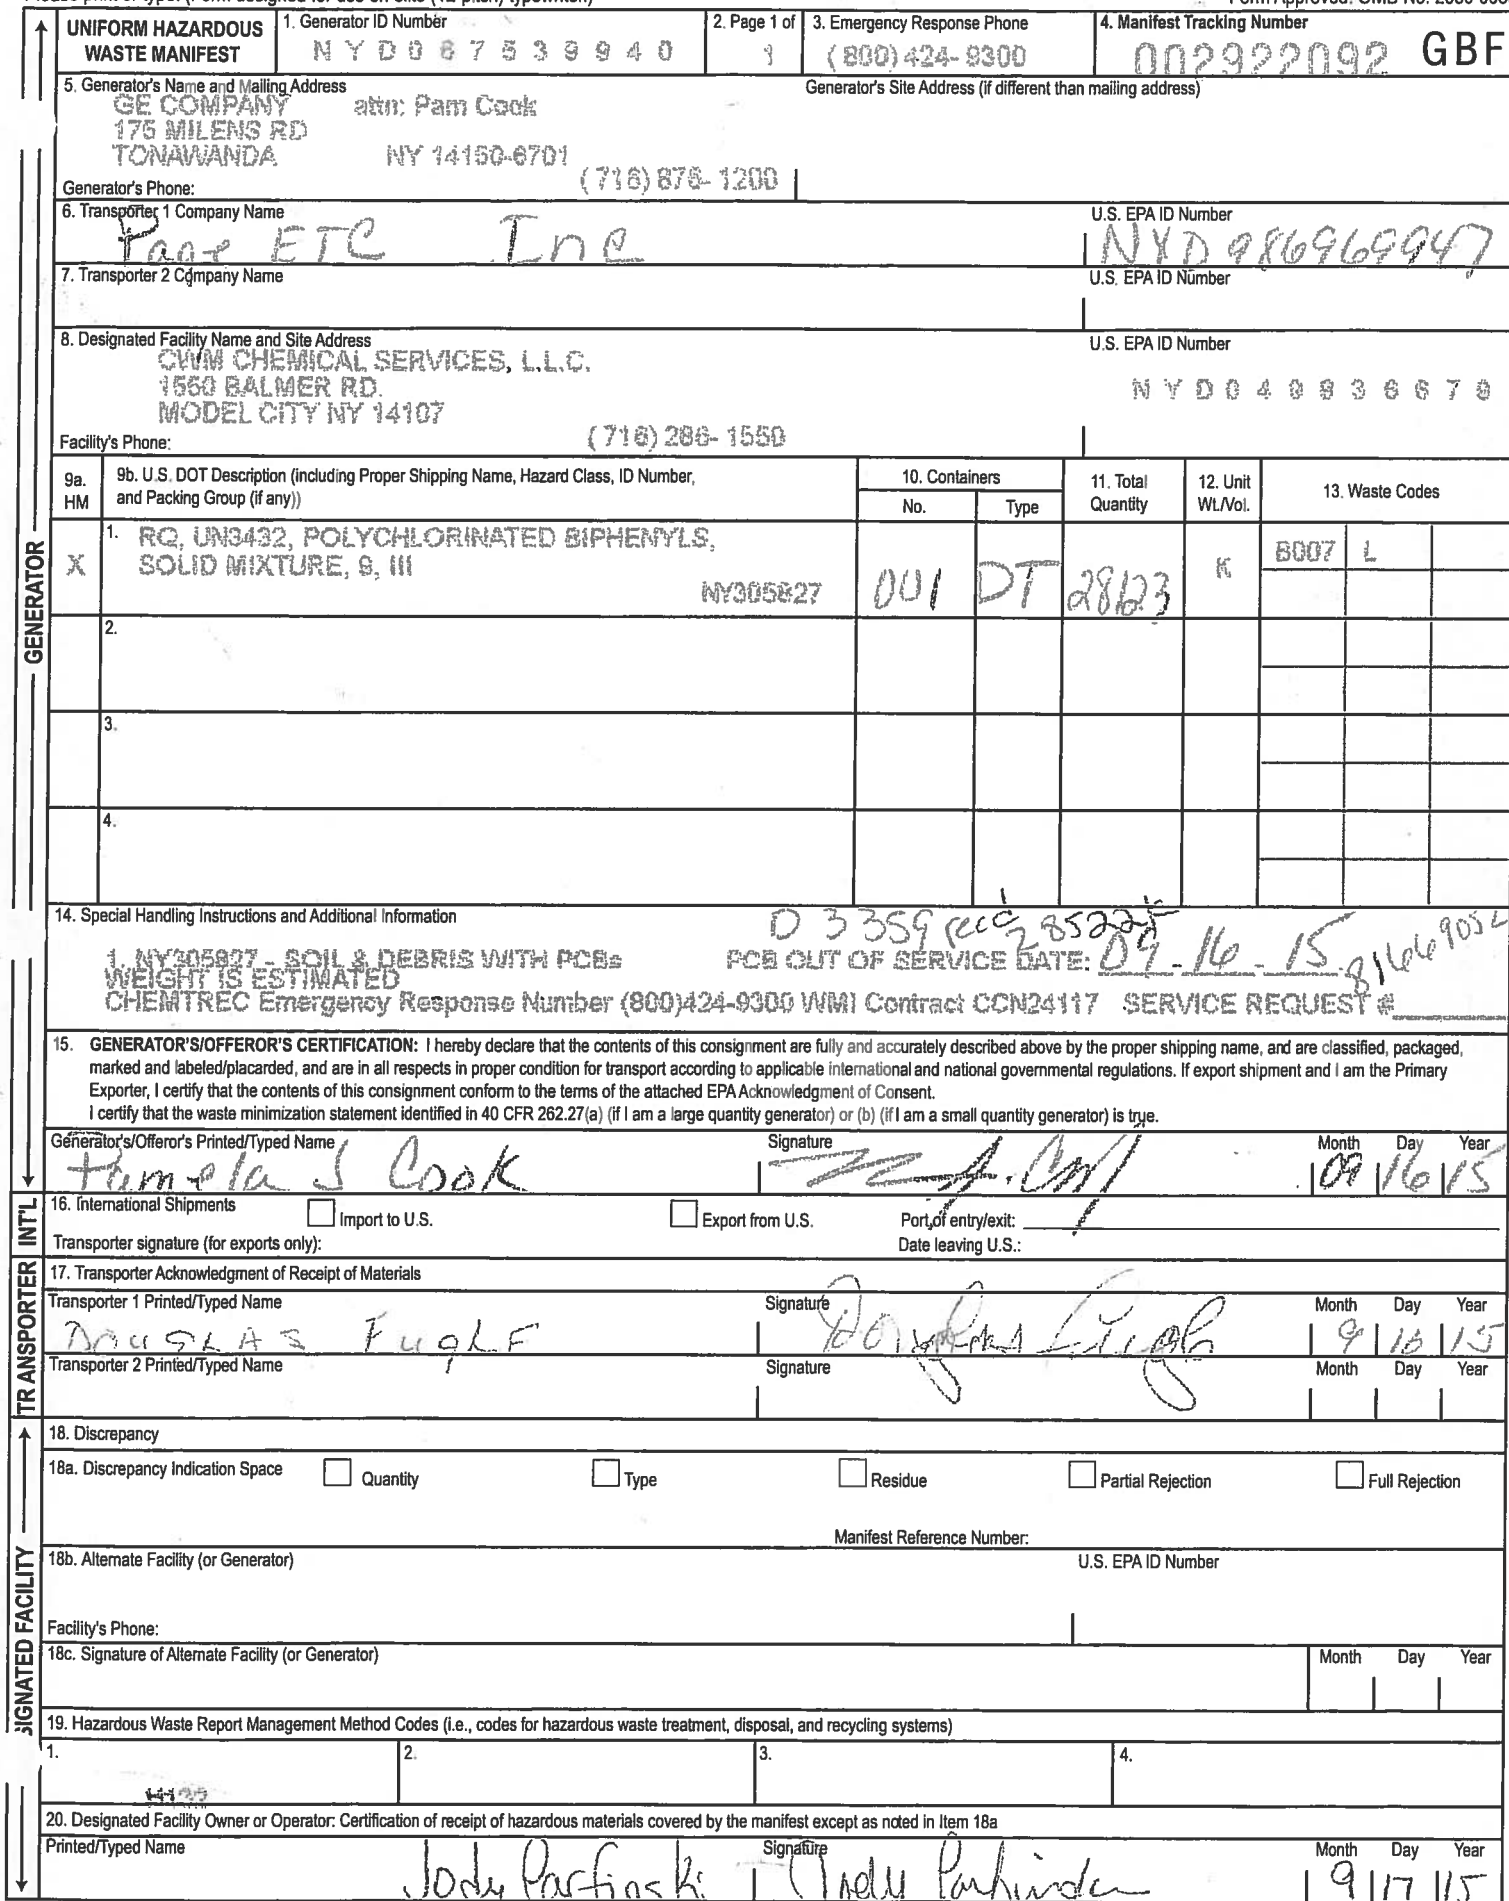 UNIFORM HAZARDOUS WASTE MANIFEST
1. Generator ID Number
NYD067539940
2. Page 1 of
1
3. Emergency Response Phone
(800)424-9300
4. Manifest Tracking Number
002922092 GBF
5. Generator's Name and Mailing Address
Generator's Site Address (if different than mailing address)
GE COMPANY attn: Pam Cook
175 MILENS RD
TONAWANDA NY 14150-6701
Generator's Phone: (716) 876-1200
6. Transporter 1 Company Name
U.S. EPA ID Number
Page ETC Inc
NYD986969947
7. Transporter 2 Company Name
U.S. EPA ID Number
8. Designated Facility Name and Site Address
U.S. EPA ID Number
CWM CHEMICAL SERVICES, L.L.C.
1550 BALMER RD.
MODEL CITY NY 14107
NYD049836679
Facility's Phone: (716) 286-1550
9a. HM
9b. U.S. DOT Description (including Proper Shipping Name, Hazard Class, ID Number, and Packing Group (if any))
10. Containers
No.
Type
11. Total Quantity
12. Unit Wt./Vol.
13. Waste Codes
X
1. RQ, UN3432, POLYCHLORINATED BIPHENYLS,
SOLID MIXTURE, 9, III
NY305827
001 DT 28123 K B007 L
2.
3.
4.
14. Special Handling Instructions and Additional Information
D 3359 rec'd 28522
1. NY305827 - SOIL & DEBRIS WITH PCBs PCB OUT OF SERVICE DATE: 09-16-15
WEIGHT IS ESTIMATED
CHEMTREC Emergency Response Number (800)424-9300 WMI Contract CCN24117 SERVICE REQUEST #
15. GENERATOR'S/OFFEROR'S CERTIFICATION: I hereby declare that the contents of this consignment are fully and accurately described above by the proper shipping name, and are classified, packaged,
marked and labeled/placarded, and are in all respects in proper condition for transport according to applicable international and national governmental regulations. If export shipment and I am the Primary
Exporter, I certify that the contents of this consignment conform to the terms of the attached EPA Acknowledgment of Consent.
I certify that the waste minimization statement identified in 40 CFR 262.27(a) (if I am a large quantity generator) or (b) (if I am a small quantity generator) is true.
Generator's/Offeror's Printed/Typed Name
Signature
Month Day Year
Pamela J Cook
09 16 15
INT'L
16. International Shipments
Import to U.S.
Export from U.S.
Port of entry/exit:
Transporter signature (for exports only):
Date leaving U.S.:
17. Transporter Acknowledgment of Receipt of Materials
Transporter 1 Printed/Typed Name
Signature
Month Day Year
DOUGLAS
9 16 15
Transporter 2 Printed/Typed Name
Signature
Month Day Year
18. Discrepancy
18a. Discrepancy Indication Space
Quantity
Type
Residue
Partial Rejection
Full Rejection
Manifest Reference Number:
18b. Alternate Facility (or Generator)
U.S. EPA ID Number
Facility's Phone:
18c. Signature of Alternate Facility (or Generator)
Month Day Year
19. Hazardous Waste Report Management Method Codes (i.e., codes for hazardous waste treatment, disposal, and recycling systems)
1.
2.
3.
4.
20. Designated Facility Owner or Operator: Certification of receipt of hazardous materials covered by the manifest except as noted in Item 18a
Printed/Typed Name
Signature
Month Day Year
Jody
9 17 15
GENERATOR
TRANSPORTER
SIGNATED FACILITY